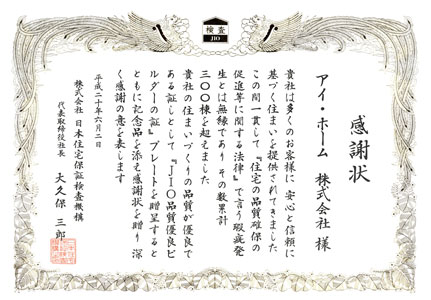 検査
JIO
感謝状
アイ・ホーム 株式会社 様
貴社は多くのお客様に 安心と信頼に
基づく住まいを提供されてきました
この間一貫して『住宅の品質確保の
促進等に関する法律』で言う瑕疵発
生とは無縁であり その数累計
三〇〇棟を超えました
貴社の住まいづくりの品質が優良で
ある証しとして『JIO品質優良ビ
ルダーの証』プレートを贈呈すると
ともに記念品を添え感謝状を贈り 深
く感謝の意を表します
平成二十年六月二日
株式会社 日本住宅保証検査機構
代表取締役社長 大久保 三郎